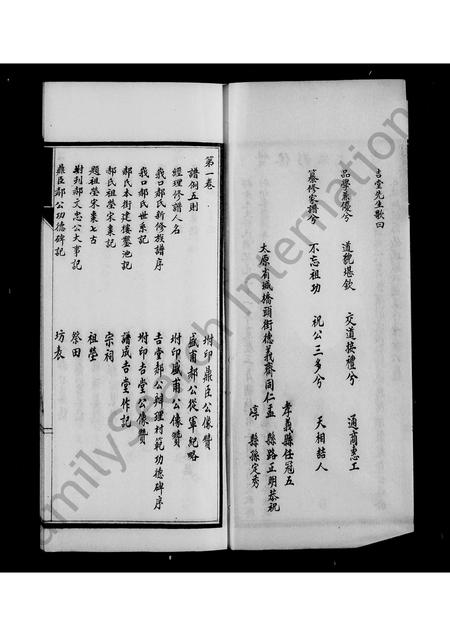 吉堂先生歌曰
品學兼優兮 道貌堪欽 交道接禮兮 通商惠工
纂修家譜兮 不忘祖功 祝公三多兮 天相喆人
太原省城橋頭街德義齋同仁孟 縣路正明恭祝
孝義縣任冠五
淳 縣孫定秀
第一卷
譜例五則
經理修譜人名
我口郝氏新修族譜序
我口郝氏世系記
郝氏本街建樓鑿池記
郝氏祖塋宋槀記
題祖塋宋槀七古
附刊郝文忠公大事記
鼎臣郝公功德碑記
坿印鼎臣公像贊
盛甫郝公從軍紀略
坿印盛甫公像贊
吉堂郝公辦理村範功德碑序
坿印吉堂公像贊
譜成吉堂作記
宗祠
祖塋
祭田
坊表
FamilySearch International